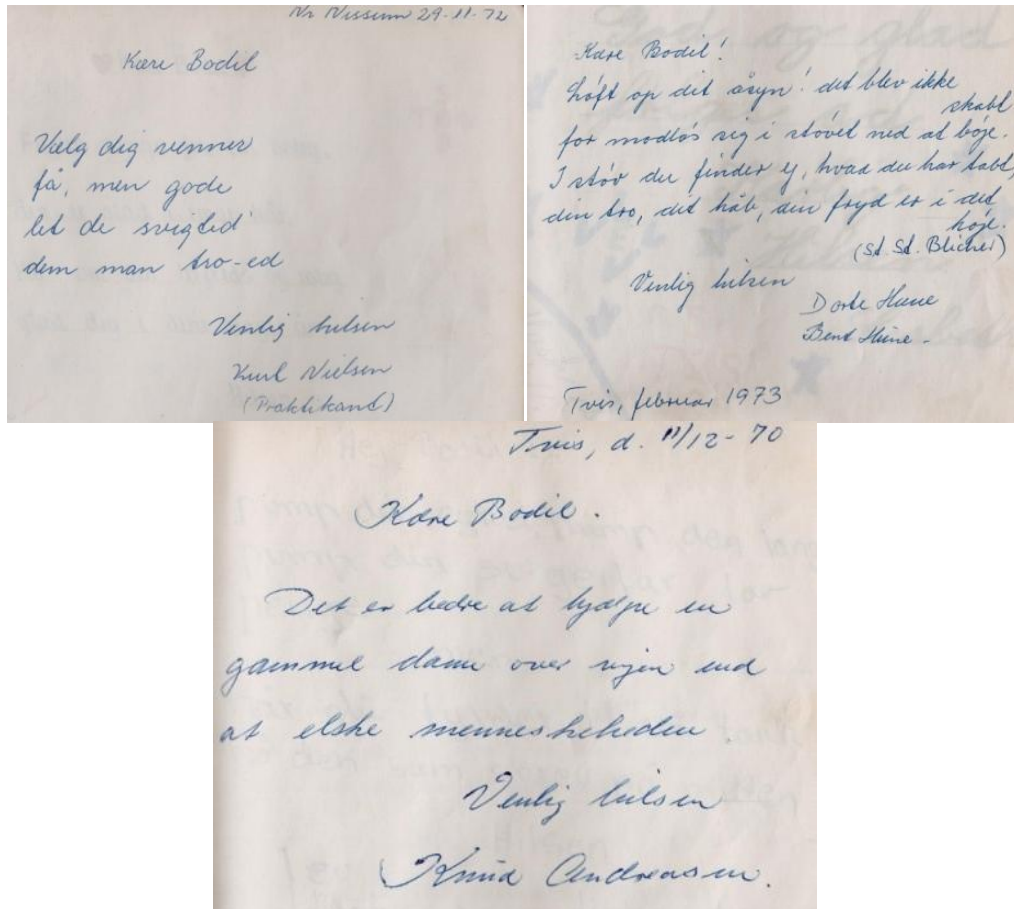 Nr Nissum 29-11-72
Kære Bodil
Vælg dig venner
få, men gode
let de svigted'
dem man tro-ed
Venlig hilsen
Kurt Nielsen
(Praktikant)
Kære Bodil!
Løft op dit åsyn! det blev ikke
skabt
for modløs sig i støvet ned at bøje.
I støv du finder ej, hvad du har tabt,
din tro, dit håb, din fryd er i det
høje.
(St. St. Blicher)
Venlig hilsen
Dorte Hune
Bent Hune -
Tvis, februar 1973
Tvis, d. 11/12-70
Kære Bodil.
Det er bedre at hjælpe en
gammel dame over vejen end
at elske menneskeheden.
Venlig hilsen
Knud Andreasen.